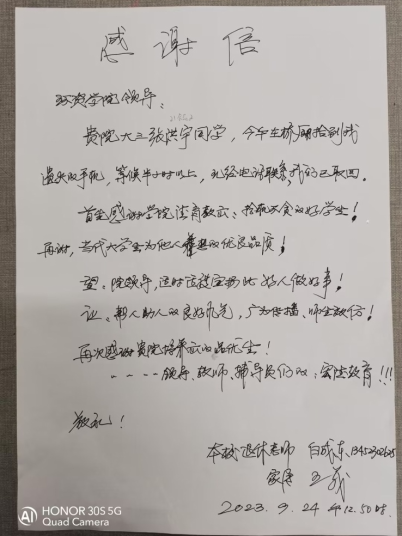 感谢信
环资学院领导:
贵院大三张洪宇同学,今午在桥厕拾到我
遗失的手机,等候半小时以上,已经电话联系,我已取回。
首先感谢学院培育教出:拾机不贪的好学生!
再谢,当代大学生为他人着想的优良品质!
望:院领导,适时应该宣扬此好人做好事!
让:帮人助人的良好风气,广为传播、师生效仿!
再次感谢贵院培养的品优生!
----领导、教师、辅导员们的:宏德教育!!!
敬礼!
本校退休老师 白成东
家属 王
2023.9.24 午12.50时.
HONOR 30S 5G
Quad Camera